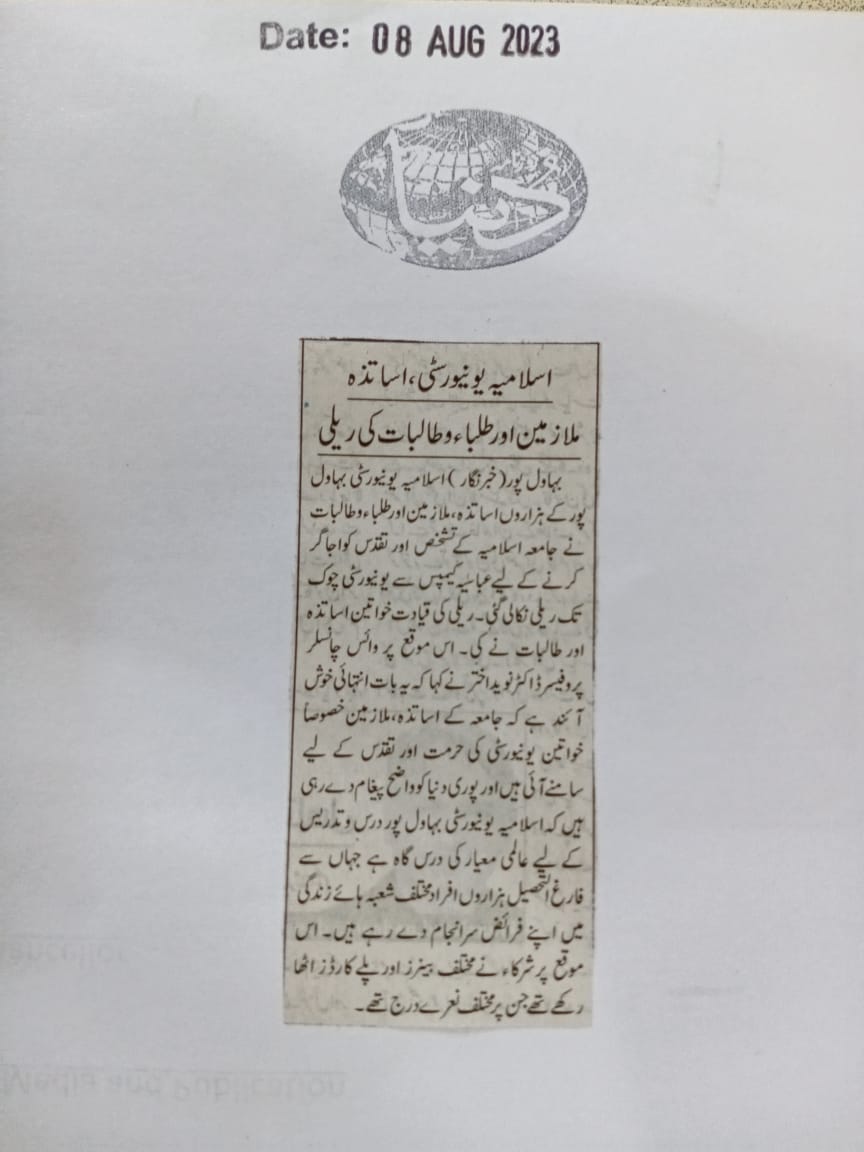 Date: 08 AUG 2023
دُنیا
اسلامیہ یونیورسٹی، اساتذہ
ملازمین اور طلباء و طالبات کی ریلی
بہاول پور (خبرنگار) اسلامیہ یونیورسٹی بہاول
پور کے ہزاروں اساتذہ، ملازمین اور طلباء و طالبات
نے جامعہ اسلامیہ کے تشخص اور تقدس کو اجاگر
کرنے کے لیے عباسیہ کیمپس سے یونیورسٹی چوک
تک ریلی نکالی گئی۔ ریلی کی قیادت خواتین اساتذہ
اور طالبات نے کی۔ اس موقع پر وائس چانسلر
پروفیسر ڈاکٹر نوید اختر نے کہا کہ یہ بات انتہائی خوش
آئند ہے کہ جامعہ کے اساتذہ، ملازمین خصوصاً
خواتین یونیورسٹی کی حرمت اور تقدس کے لیے
سامنے آئی ہیں اور پوری دنیا کو واضح پیغام دے رہی
ہیں کہ اسلامیہ یونیورسٹی بہاول پور درس و تدریس
کے لیے عالمی معیار کی درس گاہ ہے جہاں سے
فارغ التحصیل ہزاروں افراد مختلف شعبہ ہائے زندگی
میں اپنے فرائض سرانجام دے رہے ہیں۔ اس
موقع پر شرکاء نے مختلف بینرز اور پلے کارڈز اٹھا
رکھے تھے جن پر مختلف نعرے درج تھے۔
Media and Publication